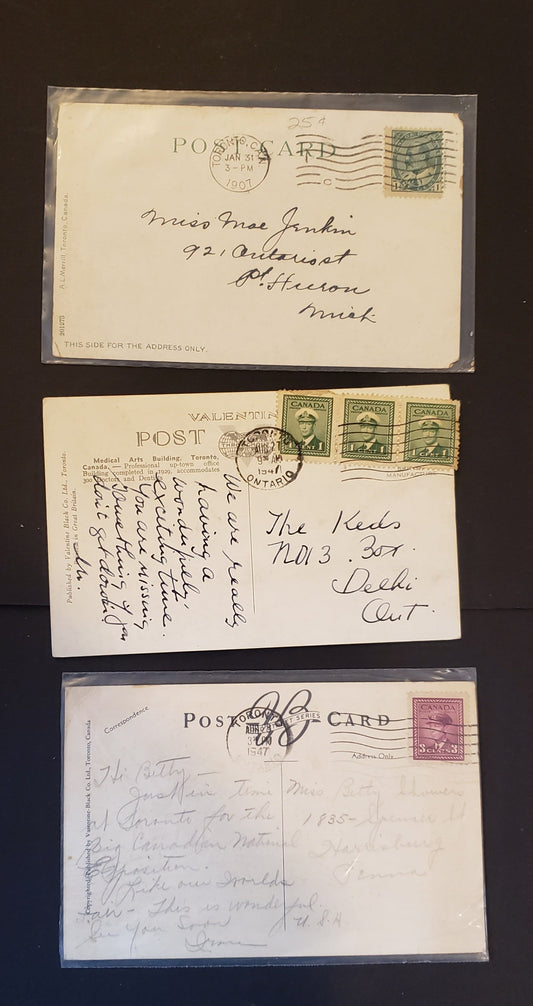 25¢
POST CARD
TORONTO, CAN.
JAN 31
3-PM
1907
C
1 1
Miss Mae Jenkin
921 Ontario st
Pt. Huron
Mich
A.L. Merrill, Toronto, Canada.
THIS SIDE FOR THE ADDRESS ONLY.
VALENTIN
POST
CANADA
CANADA
CANADA
TORONTO
AUG 27
9 AM
1947
ONTARIO
MANUFACTURE
Medical Arts Building, Toronto,
Canada, — Professional up-town office
Building completed in 1929, accommodates
300 Doctors and Dentists
Published by Valentine Black Co. Ltd., Toronto.
in Great Britain.
We are really
having a
wonderful,
exciting time.
You are missing
something if you
don't get down!
The Keds
No 13. Box.
Delhi
Ont.
Correspondence
POST CARD
SERIES
Address Only
CANADA
3 CENTS 3
TORONTO
AUG 28
PM
1947
Copyrighted Published by Valentine-Black Co. Ltd., Toronto, Canada
Hi Betty —
Just in time
at Toronto for the
Big Canadian National
Exposition.
Like our Worlds
Fair - This is wonderful.
See You Soon
Miss Betty Showers
1835 - Spencer St
Harrisburg
Penna
U.S.A.